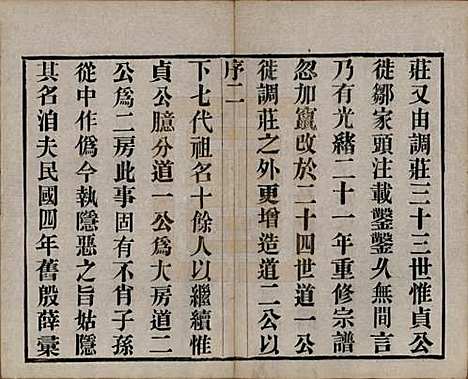 莊又由調莊三十三世惟貞公
徙鄒家頭注載鑿鑿久無間言
乃有光緒二十一年重修宗譜
忽加竄改於二十四世道一公
徙調莊之外更增造道二公以
序二
下七代祖名十餘人以繼續惟
貞公臆分道一公為大房道二
公為二房此事固有不肖子孫
從中作偽今執隱惡之旨姑隱
其名洎夫民國四年舊殷薛彙